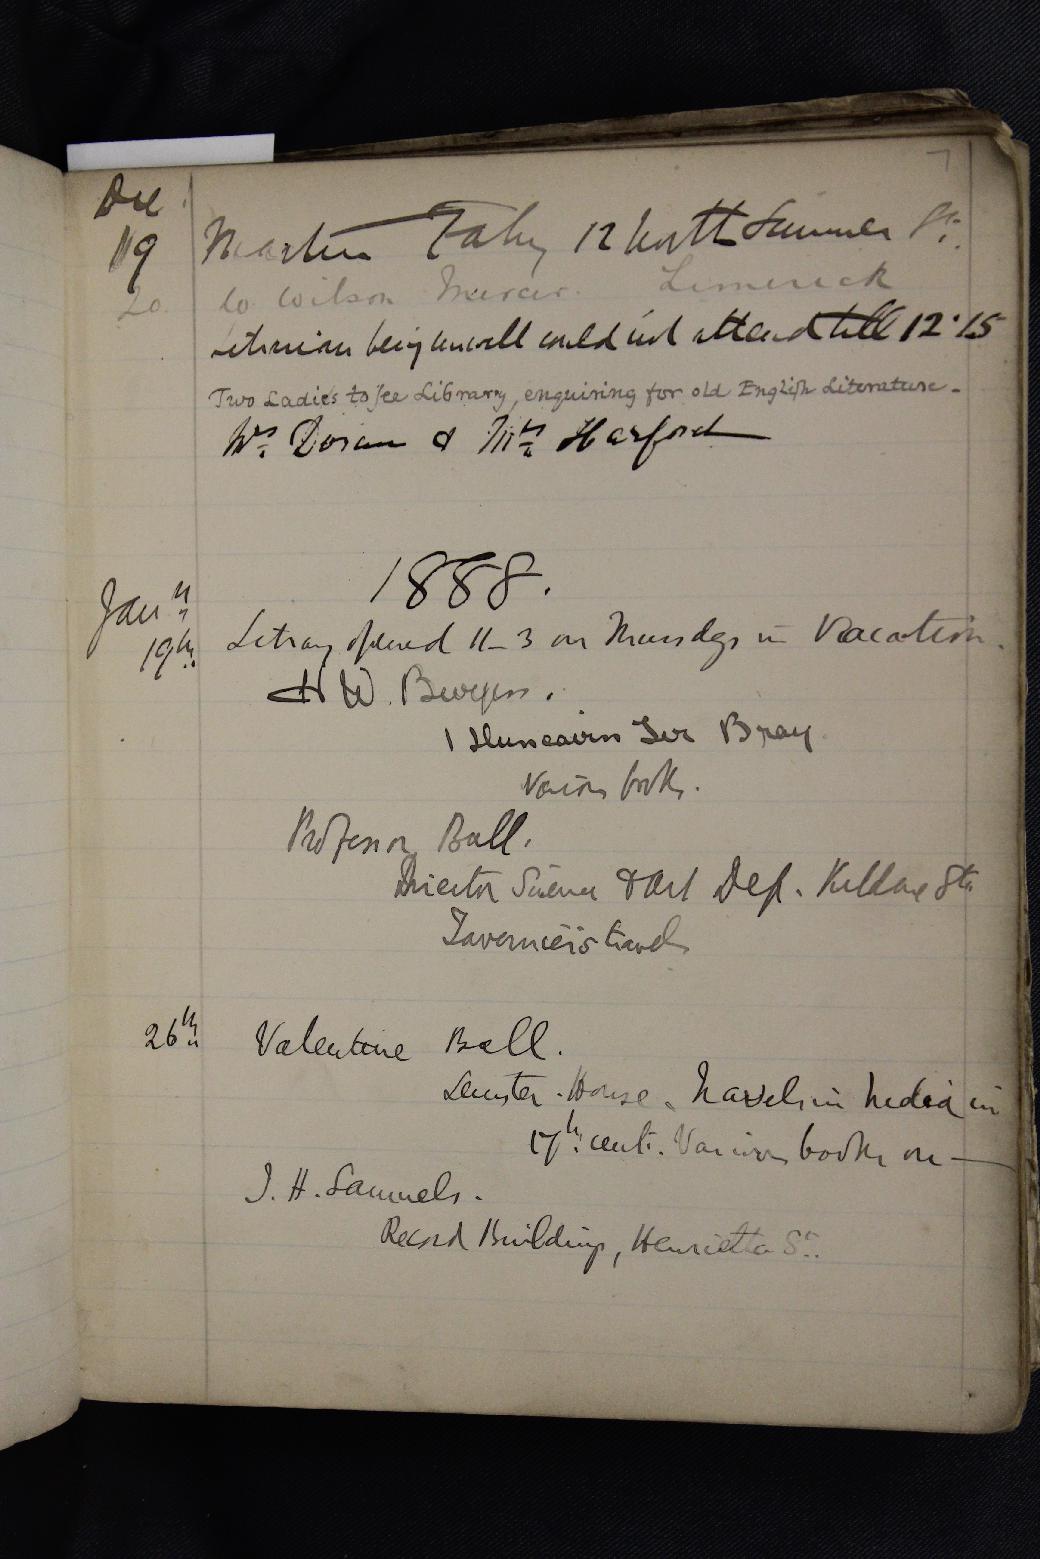 7
Dec
19 Martin Fahy 12 North Summer St.
20 W Wilson Mercer. Limerick
Librarian being unwell could not attend till 12.15
Two Ladies to see Library, enquiring for old English Literature -
Mrs Doran & Mrs Harford
1888.
Jany
19th Library opened 11-3 on Thursdays in Vacation.
H W. Burgess.
1 Duncairn Ter Bray
Various books.
Professor Ball.
Director Science & Art Dept. Kildare St.
Tavernier's travels
26th Valentine Ball.
Leinster House. Travels in India in
17th cent. Various books on —
J. H. Samuels.
Record Buildings, Henrietta St.